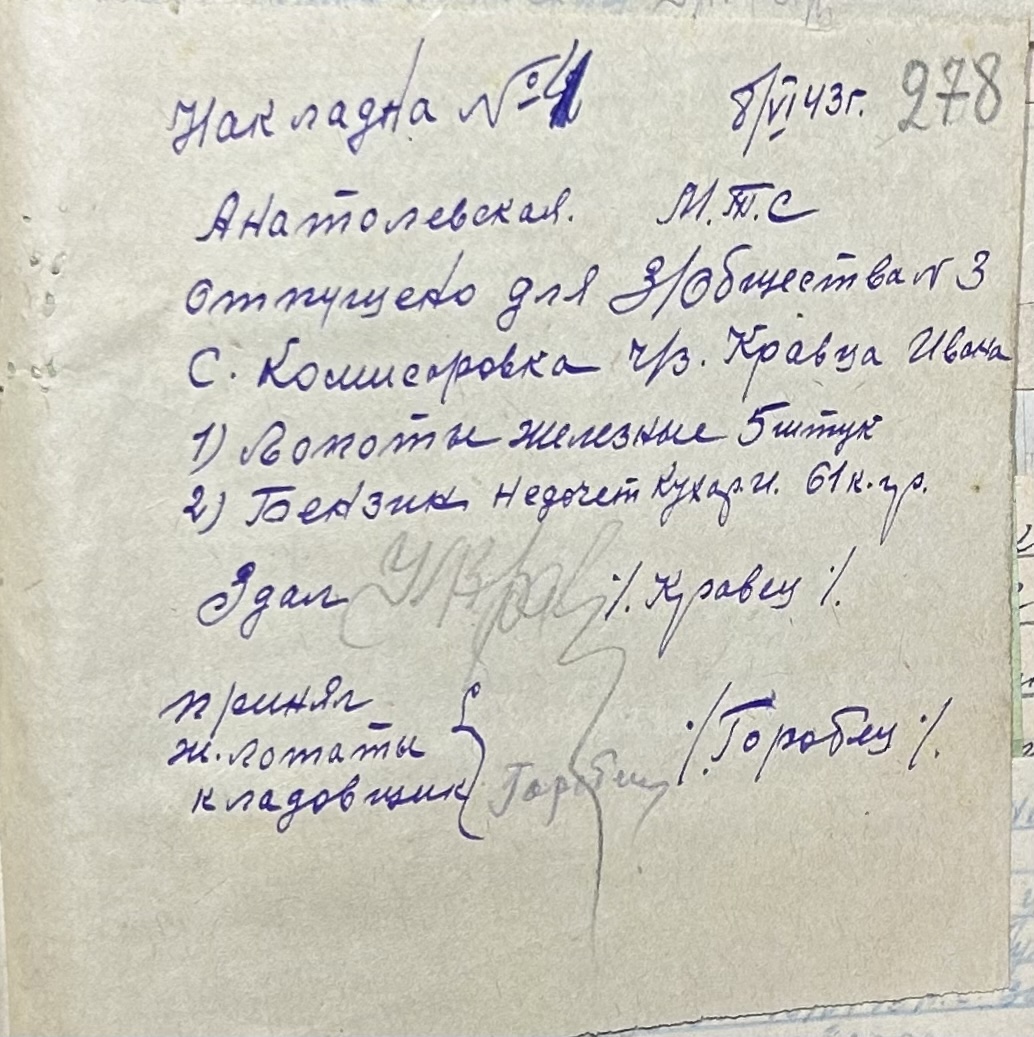 Накладна №4 8/VI 43г. 278
Анатолевская. М.Т.С
Отпущено для З/Общества N 3
С. Комисаровка ч/з. Кравца Ивана
1) Лопоты железные 5 штук
2) Бензин недочет Кухар.И. 61 к.гр.
Здал /. Кравец /.
принял
ж. лопаты
кладовщик Горобец /. Горобец /.